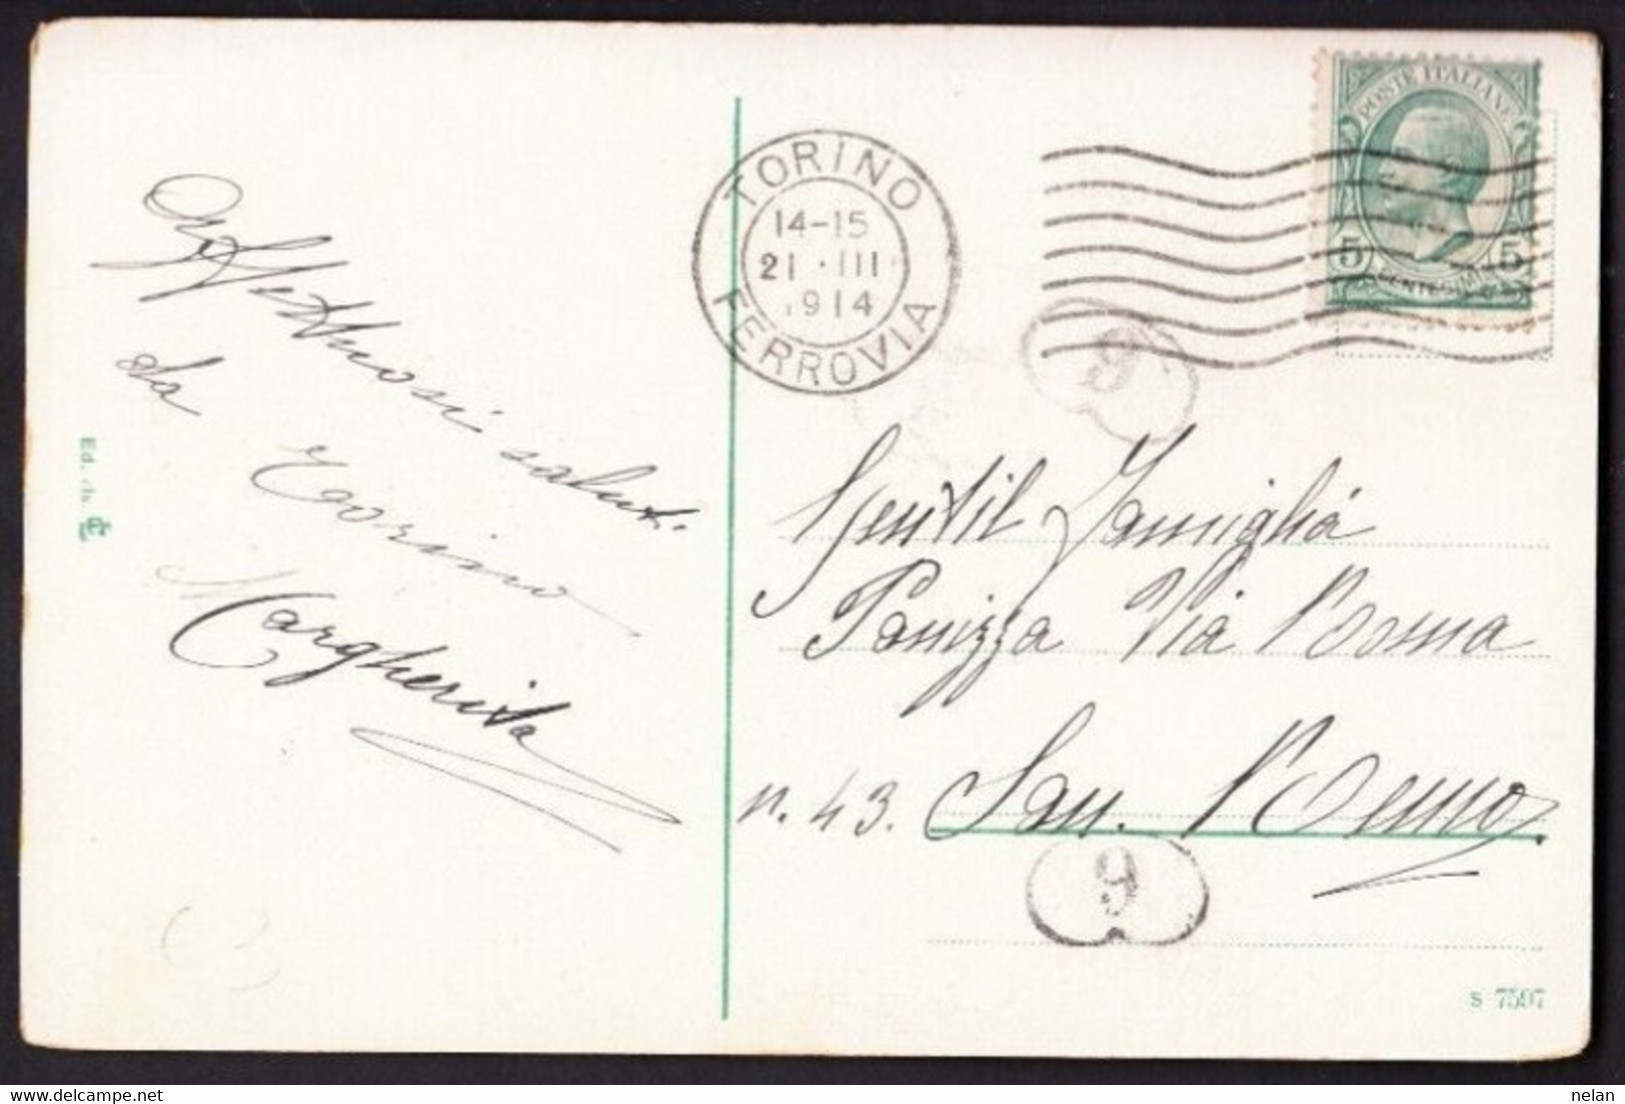 Affettuosi saluti
da Torino
Margherita
Ed. ris.
TORINO
14-15
21 · III
1914
FERROVIA
POSTE ITALIANE
5 CENTESIMI 5
9
Gentil Famiglia
Panizza Via Roma
n. 43. San. Remo
9
S 7597
delcampe.net
nelan